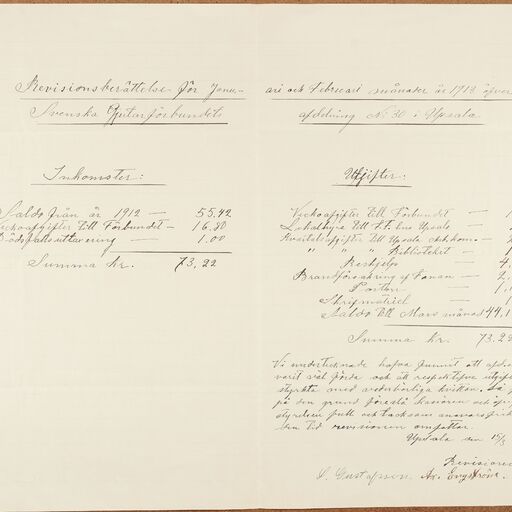 Revisionsberättelse för Janu-
ari och Februari månader år 1913 öfver
Svenska Gjutarförbundets
afdelning No 30 i Upsala
Inkomster:
Saldo från år 1912 — 55,42
Veckoafgifter till Förbundet — 16,80
Dödsfallsuttaxering — 1.00
Summa Kr. 73,22
Utgifter:
Veckoafgifter till Förbundet — 1
Lokalhyra till F.f. hus Upsala — 1
Kvartalsafgifter till Upsala Arb.kom. — 2
" " " Bibliotekit — 1
Reshjelp — 4
Brandförsäkring af Fanan — 2.
Porton — 1,
Skrifmateriel — 1
Saldo till Mars månad 44,1
Summa Kr. 73.22
Vi undertecknade hafva funnit att
varit väl förda och att respektifve utgifter
styrkta med vederbörliga kvitton.
på den grund föreslå kassören och öfr
styrelsen full och tacksam ansvarsfrihet
den tid revisionen omfattar.
Upsala den 15/
Revisorer
S. Gustafsson Ax. Engström